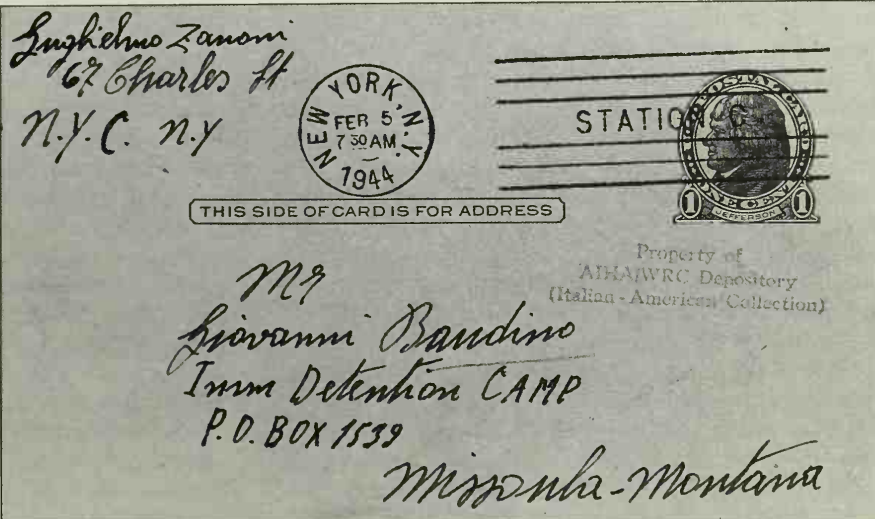 Guglielmo Zanoni
67 Charles St
N.Y.C. N.Y
NEW YORK, N.Y.
FEB 5
7 30 AM
1944
STATION C
POSTAL CARD
ONE CENT
1 JEFFERSON 1
THIS SIDE OF CARD IS FOR ADDRESS
Property of
AIHA/WRC Depository
(Italian-American Collection)
Mr
Giovanni Baudino
Imm Detention CAMP
P.O. BOX 1539
Missoula-Montana